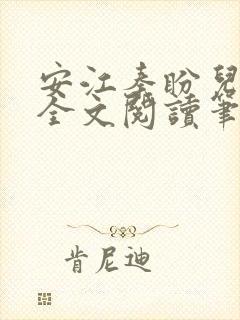 安江秦盼兒
全文閱讀筆
肯尼迪